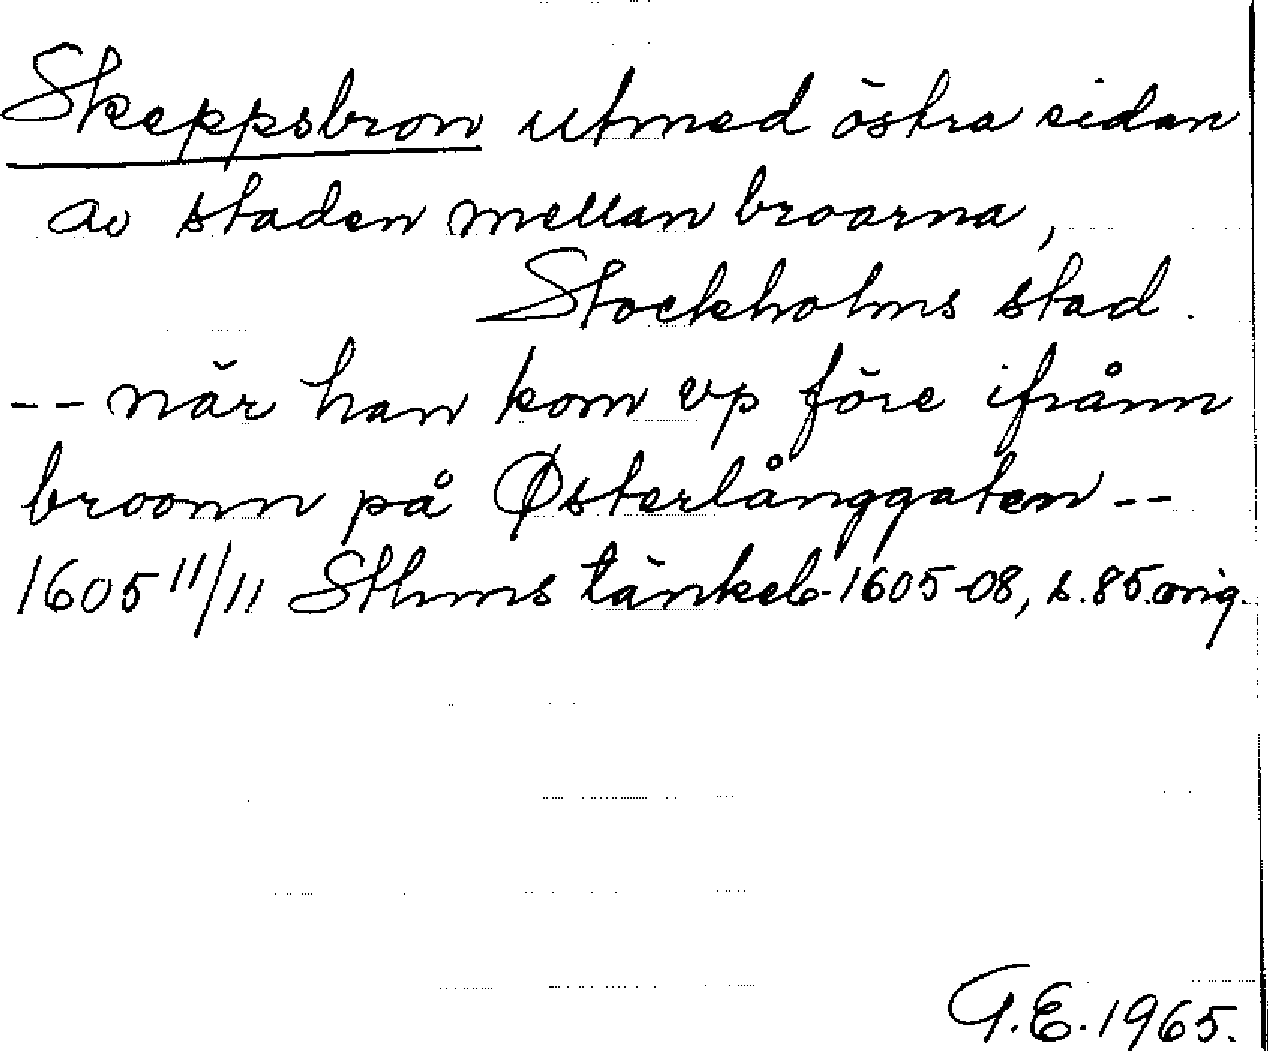 Skeppsbron utmed östra sidan
av staden mellan broarna,
Stockholms stad.
-- når han kom vp före ifrånn
broonn på Østerlånggaten --
1605 11/11 Sthms tänkeb. 1605-08, s. 85. orig.
G.E. 1965.